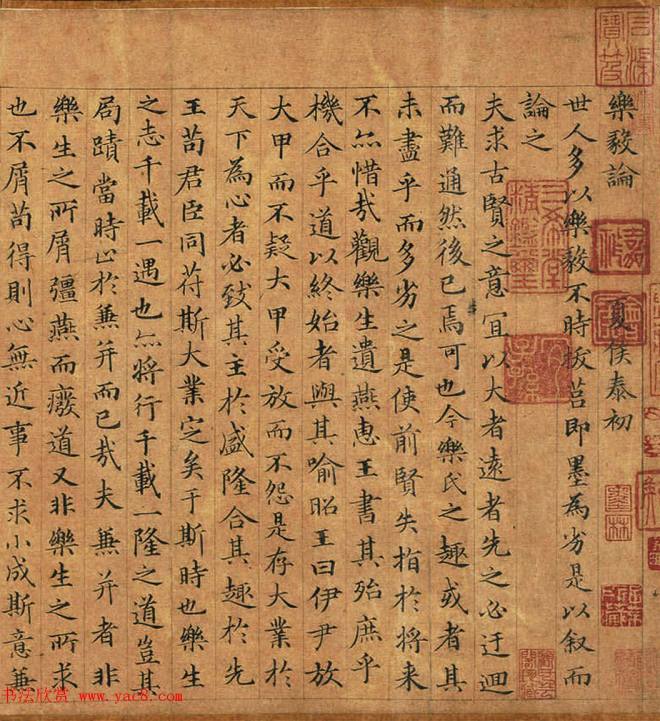 樂毅論 夏侯泰初
世人多以樂毅不時拔莒即墨為劣是以叙而
論之
夫求古賢之意冝以大者遠者先之必迂迴
而難通然後已焉可也今樂氏之趣或者其
未盡乎而多劣之是使前賢失指於將来
不亦惜哉觀樂生遺燕惠王書其殆庶乎
機合乎道以終始者與其喻昭王曰伊尹放
大甲而不疑大甲受放而不怨是存大業於
天下為心者必致其主於盛隆合其趣於先
王苟君臣同苻斯大業定矣于斯時也樂生
之志千載一遇也亦将行千載一隆之道豈其
局蹟當時止於蒹并而已㢤夫蒹并者非
樂生之所屑彊燕而廢道又非樂生之所求
也不屑苟得則心無近事不求小成斯意蒹
书法欣赏 www.yac8.com